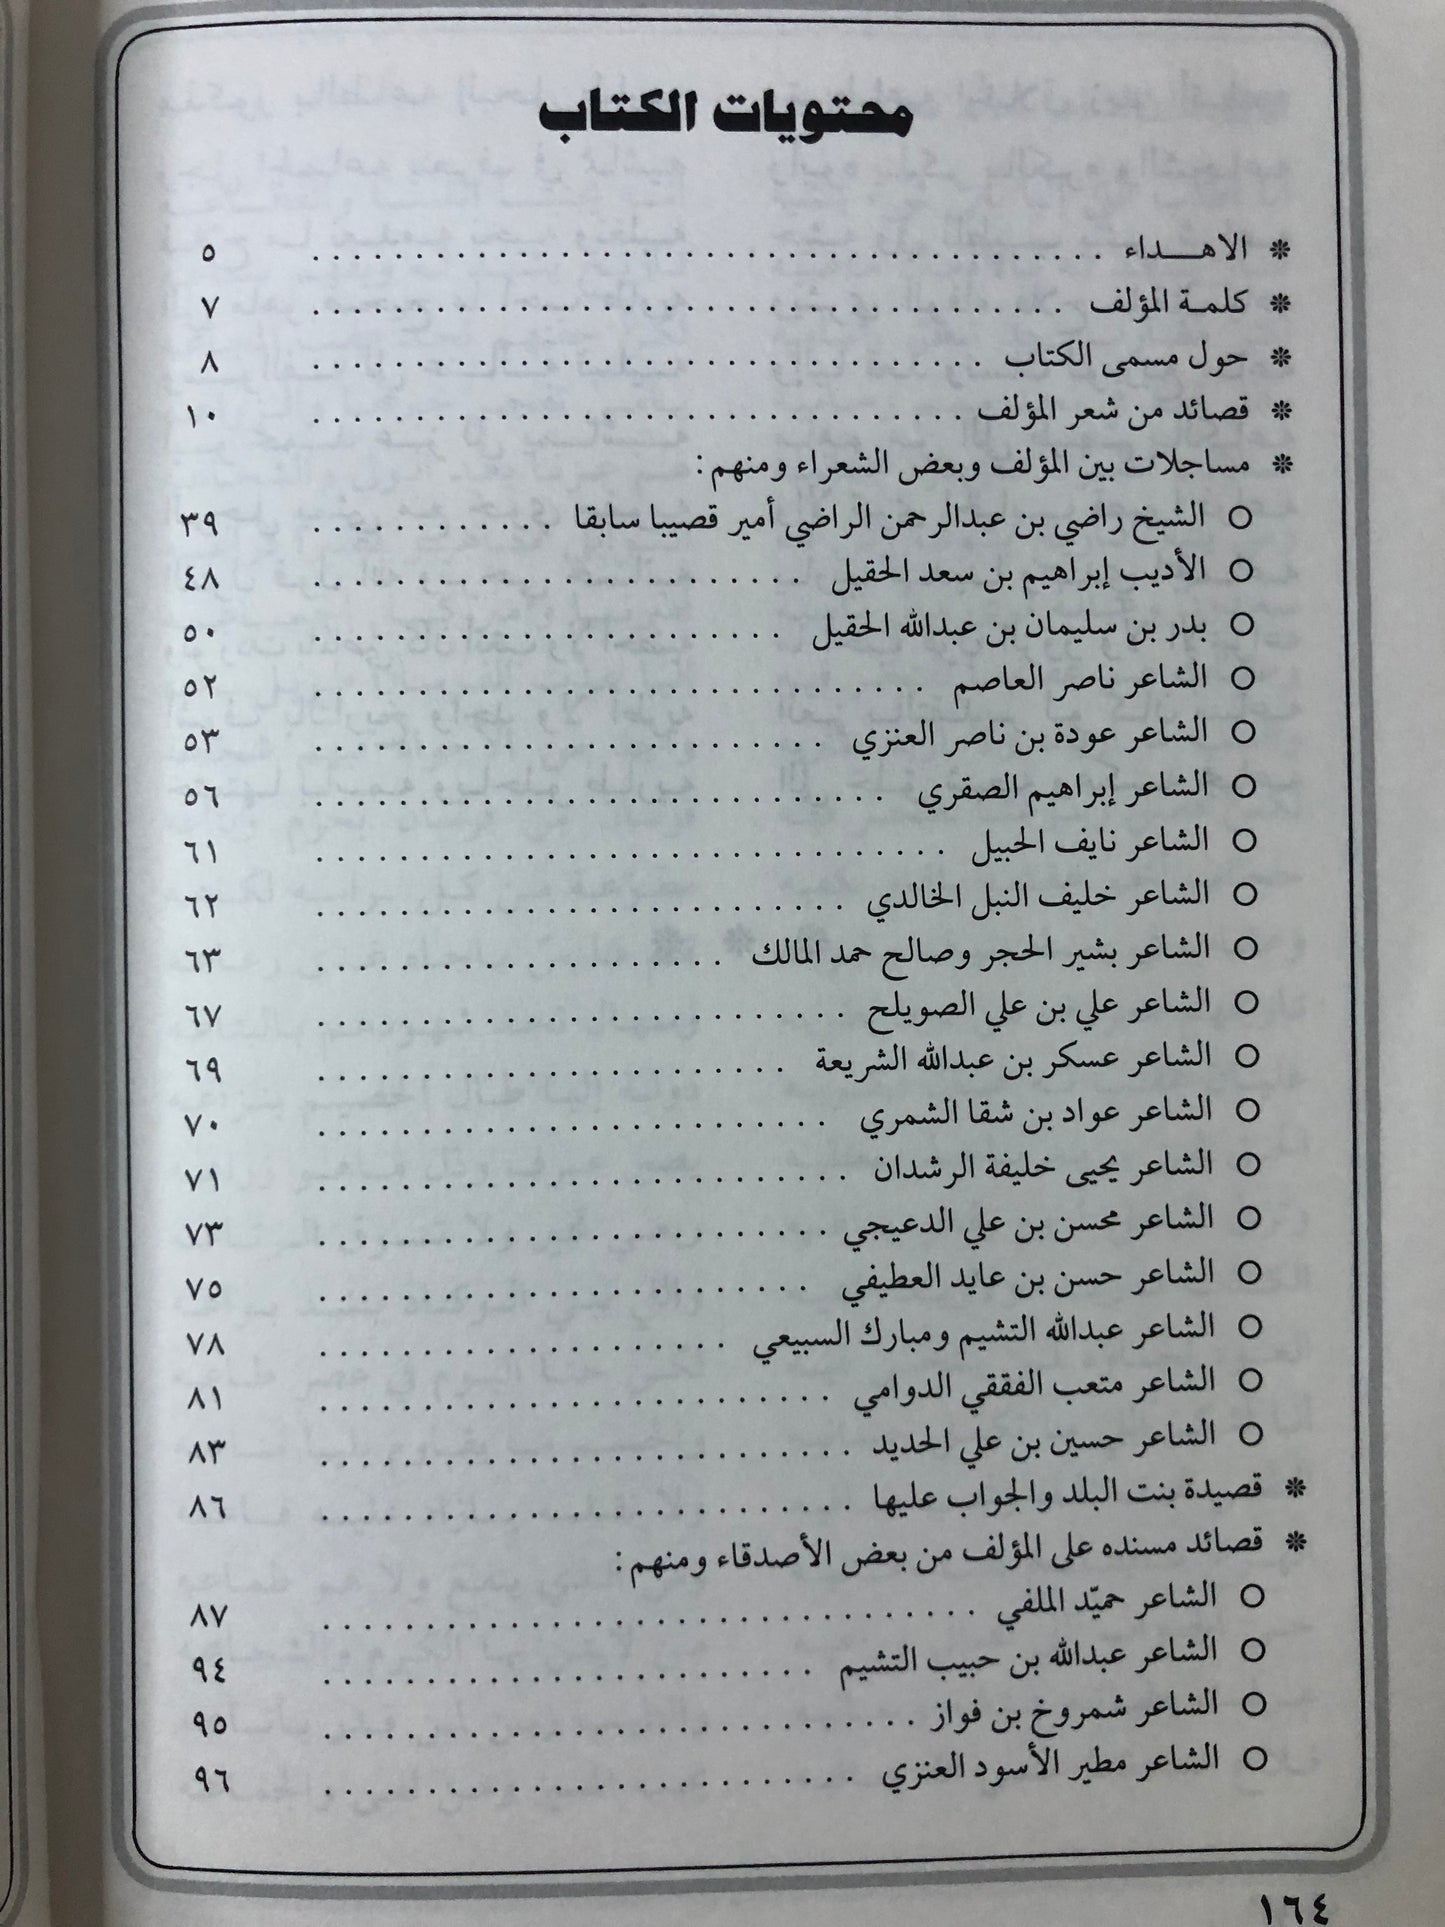 محتويات الكتاب
❊ الاهـــداء ........................................ ٥
❊ كلمة المؤلف ........................................ ٧
❊ حول مسمى الكتاب ................................. ٨
❊ قصائد من شعر المؤلف ................................ ١٠
❊ مساجلات بين المؤلف وبعض الشعراء ومنهم:
○ الشيخ راضي بن عبدالرحمن الراضي أمير قصيبا سابقا ............ ٣٩
○ الأديب إبراهيم بن سعد الحقيل ........................ ٤٨
○ بدر بن سليمان بن عبدالله الحقيل ....................... ٥٠
○ الشاعر ناصر العاصم .............................. ٥٢
○ الشاعر عودة بن ناصر العنزي ......................... ٥٣
○ الشاعر إبراهيم الصقري ............................ ٥٦
○ الشاعر نايف الحبيل ............................... ٦١
○ الشاعر خليف النبل الخالدي .......................... ٦٢
○ الشاعر بشير الحجر وصالح حمد المالك .................... ٦٣
○ الشاعر علي بن علي الصويلح .......................... ٦٧
○ الشاعر عسكر بن عبدالله الشريعة ....................... ٦٩
○ الشاعر عواد بن شقا الشمري ......................... ٧٠
○ الشاعر يحيى خليفة الرشدان .......................... ٧١
○ الشاعر محسن بن علي الدعيجي ......................... ٧٣
○ الشاعر حسن بن عايد العطيفي ........................ ٧٥
○ الشاعر عبدالله التشيم ومبارك السبيعي .................... ٧٨
○ الشاعر متعب الفققي الدوامي ......................... ٨١
○ الشاعر حسين بن علي الحديد .......................... ٨٣
❊ قصيدة بنت البلد والجواب عليها .......................... ٨٦
❊ قصائد مسنده على المؤلف من بعض الأصدقاء ومنهم:
○ الشاعر حميّد الملفي ................................ ٨٧
○ الشاعر عبدالله بن حبيب التشيم ........................ ٩٤
○ الشاعر شمروخ بن فواز ............................. ٩٥
○ الشاعر مطير الأسود العنزي .......................... ٩٦
١٦٤